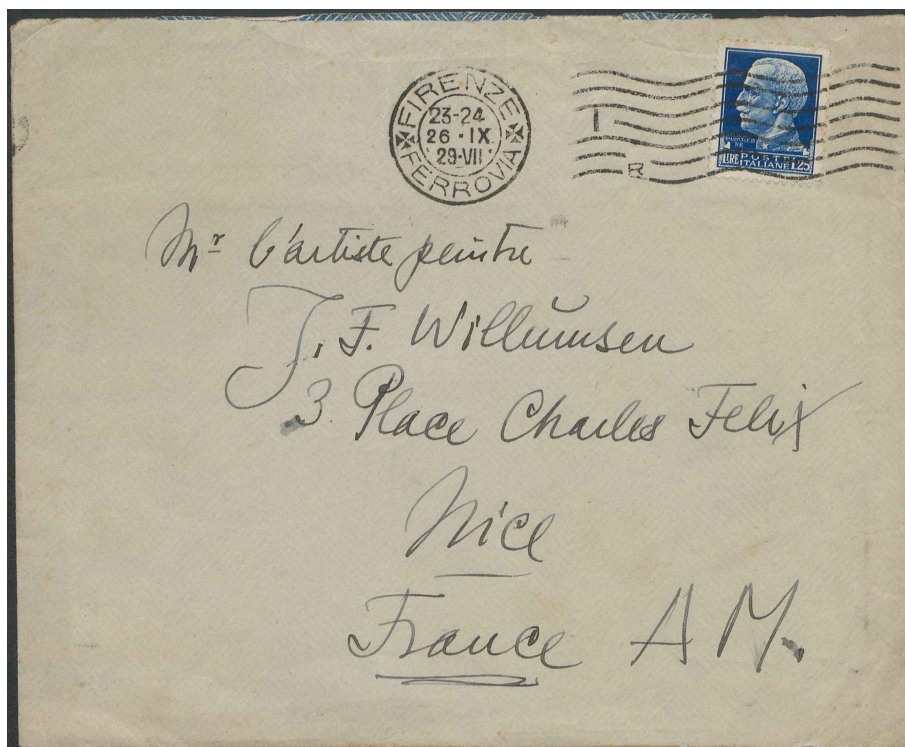 FIRENZE
23-24
26·IX
29·VII
FERROVIA
LIRE POSTE 1.25
ITALIANE
Mr l'artiste peintre
J. F. Willumsen
3 Place Charles Felix
Nice
France A M.